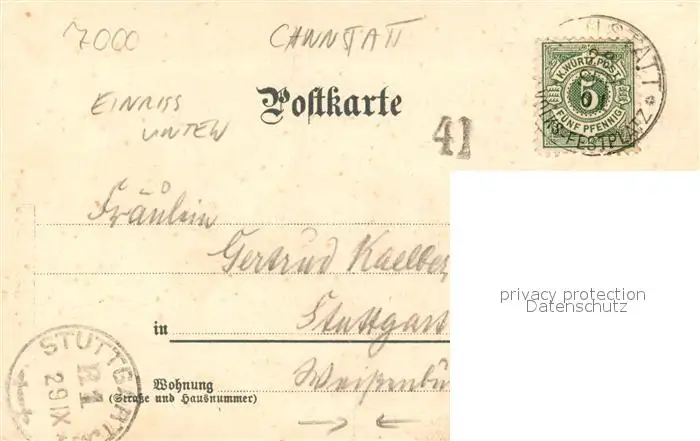 7000 CANNSTATT
EINRISS
UNTEN
Postkarte
41
K. WÜRTT. POST
5
FÜNF PFENNIG
VOLKS-FESTPLATZ
Fräulein
Gertrud Kaelber
privacy protection
Datenschutz
in Stuttgart
STUTTGART
29 IX
Wohnung
(Straße und Hausnummer)